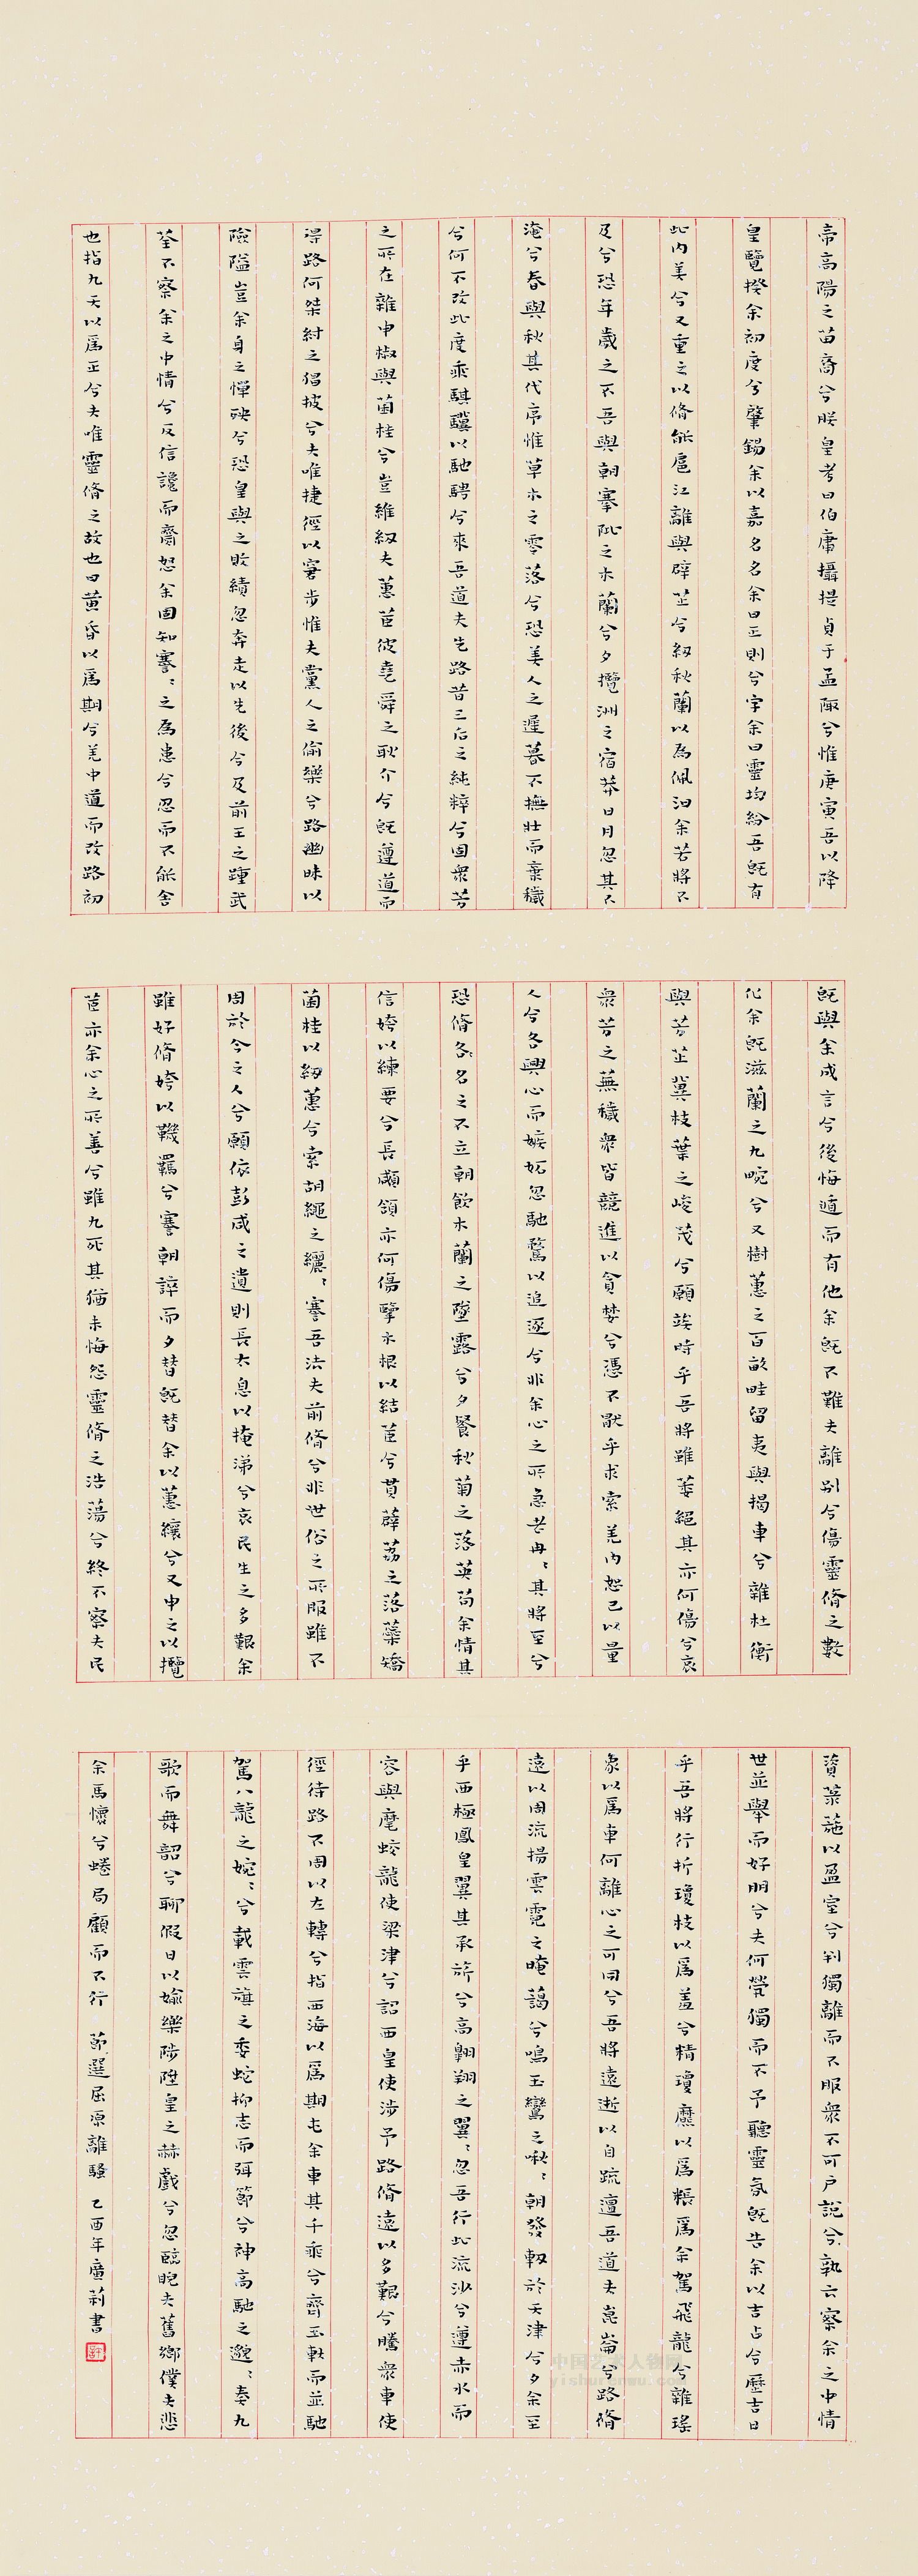 帝高陽之苗裔兮朕皇考曰伯庸攝提貞于孟陬兮惟庚寅吾以降
皇覽揆余初度兮肇錫余以嘉名名余曰正則兮字余曰靈均紛吾既有
此內美兮又重之以脩能扈江離與辟芷兮紉秋蘭以為佩汩余若將不
及兮恐年歲之不吾與朝搴阰之木蘭兮夕攬洲之宿莽日月忽其不
淹兮春與秋其代序惟草木之零落兮恐美人之遲暮不撫壯而棄穢
兮何不改此度乘騏驥以馳騁兮來吾道夫先路昔三后之純粹兮固衆芳
之所在雜申椒與菌桂兮豈維紉夫蕙茝彼堯舜之耿介兮既遵道而
得路何桀紂之猖披兮夫唯捷徑以窘步惟夫黨人之偷樂兮路幽昧以
險隘豈余身之憚殃兮恐皇輿之敗績忽奔走以先後兮及前王之踵武
荃不察余之中情兮反信讒而齌怒余固知謇〻之為患兮忍而不能舍
也指九天以爲正兮夫唯靈脩之故也曰黄昏以爲期兮羌中道而改路初
既與余成言兮後悔遁而有他余既不難夫離別兮傷靈脩之數
化余既滋蘭之九畹兮又樹蕙之百畝畦留夷與揭車兮雜杜衡
與芳芷冀枝葉之峻茂兮願竢時乎吾將雖萎絕其亦何傷兮哀
衆芳之蕪穢衆皆競進以貪婪兮憑不猒乎求索羌內恕己以量
人兮各興心而嫉妬忽馳騖以追逐兮非余心之所急老冉〻其將至兮
恐脩名之不立朝飲木蘭之墜露兮夕餐秋菊之落英苟余情其
信姱以練要兮長顑頷亦何傷擥木根以結茝兮貫薜荔之落蘂矯
菌桂以紉蕙兮索胡繩之纚〻謇吾法夫前脩兮非世俗之所服雖不
周於今之人兮願依彭咸之遺則長太息以掩涕兮哀民生之多艱余
雖好脩姱以鞿羈兮謇朝誶而夕替既替余以蕙纕兮又申之以攬
茝亦余心之所善兮雖九死其猶未悔怨靈脩之浩蕩兮終不察夫民
薋菉葹以盈室兮判獨離而不服衆不可户說兮孰云察余之中情
世並舉而好朋兮夫何煢獨而不予聽靈氛既告余以吉占兮歷吉日
乎吾將行折瓊枝以爲羞兮精瓊爢以爲粻爲余駕飛龍兮雜瑤
象以爲車何離心之可同兮吾將遠逝以自疏邅吾道夫崑崙兮路脩
遠以周流揚雲霓之晻藹兮鳴玉鸞之啾〻朝發軔於天津兮夕余至
乎西極鳳皇翼其承旂兮高翱翔之翼〻忽吾行此流沙兮遵赤水而
容與麾蛟龍使梁津兮詔西皇使涉予路脩遠以多艱兮騰衆車使
徑待路不周以左轉兮指西海以爲期屯余車其千乘兮齊玉軑而並馳
駕八龍之婉〻兮載雲旗之委蛇抑志而弭節兮神高馳之邈〻奏九
歌而舞韶兮聊假日以媮樂陟陞皇之赫戲兮忽臨睨夫舊鄉僕夫悲
余馬懷兮蜷局顧而不行 節選屈原離騷 乙酉年 莉書
中国艺术人物网
yishurenwu.com